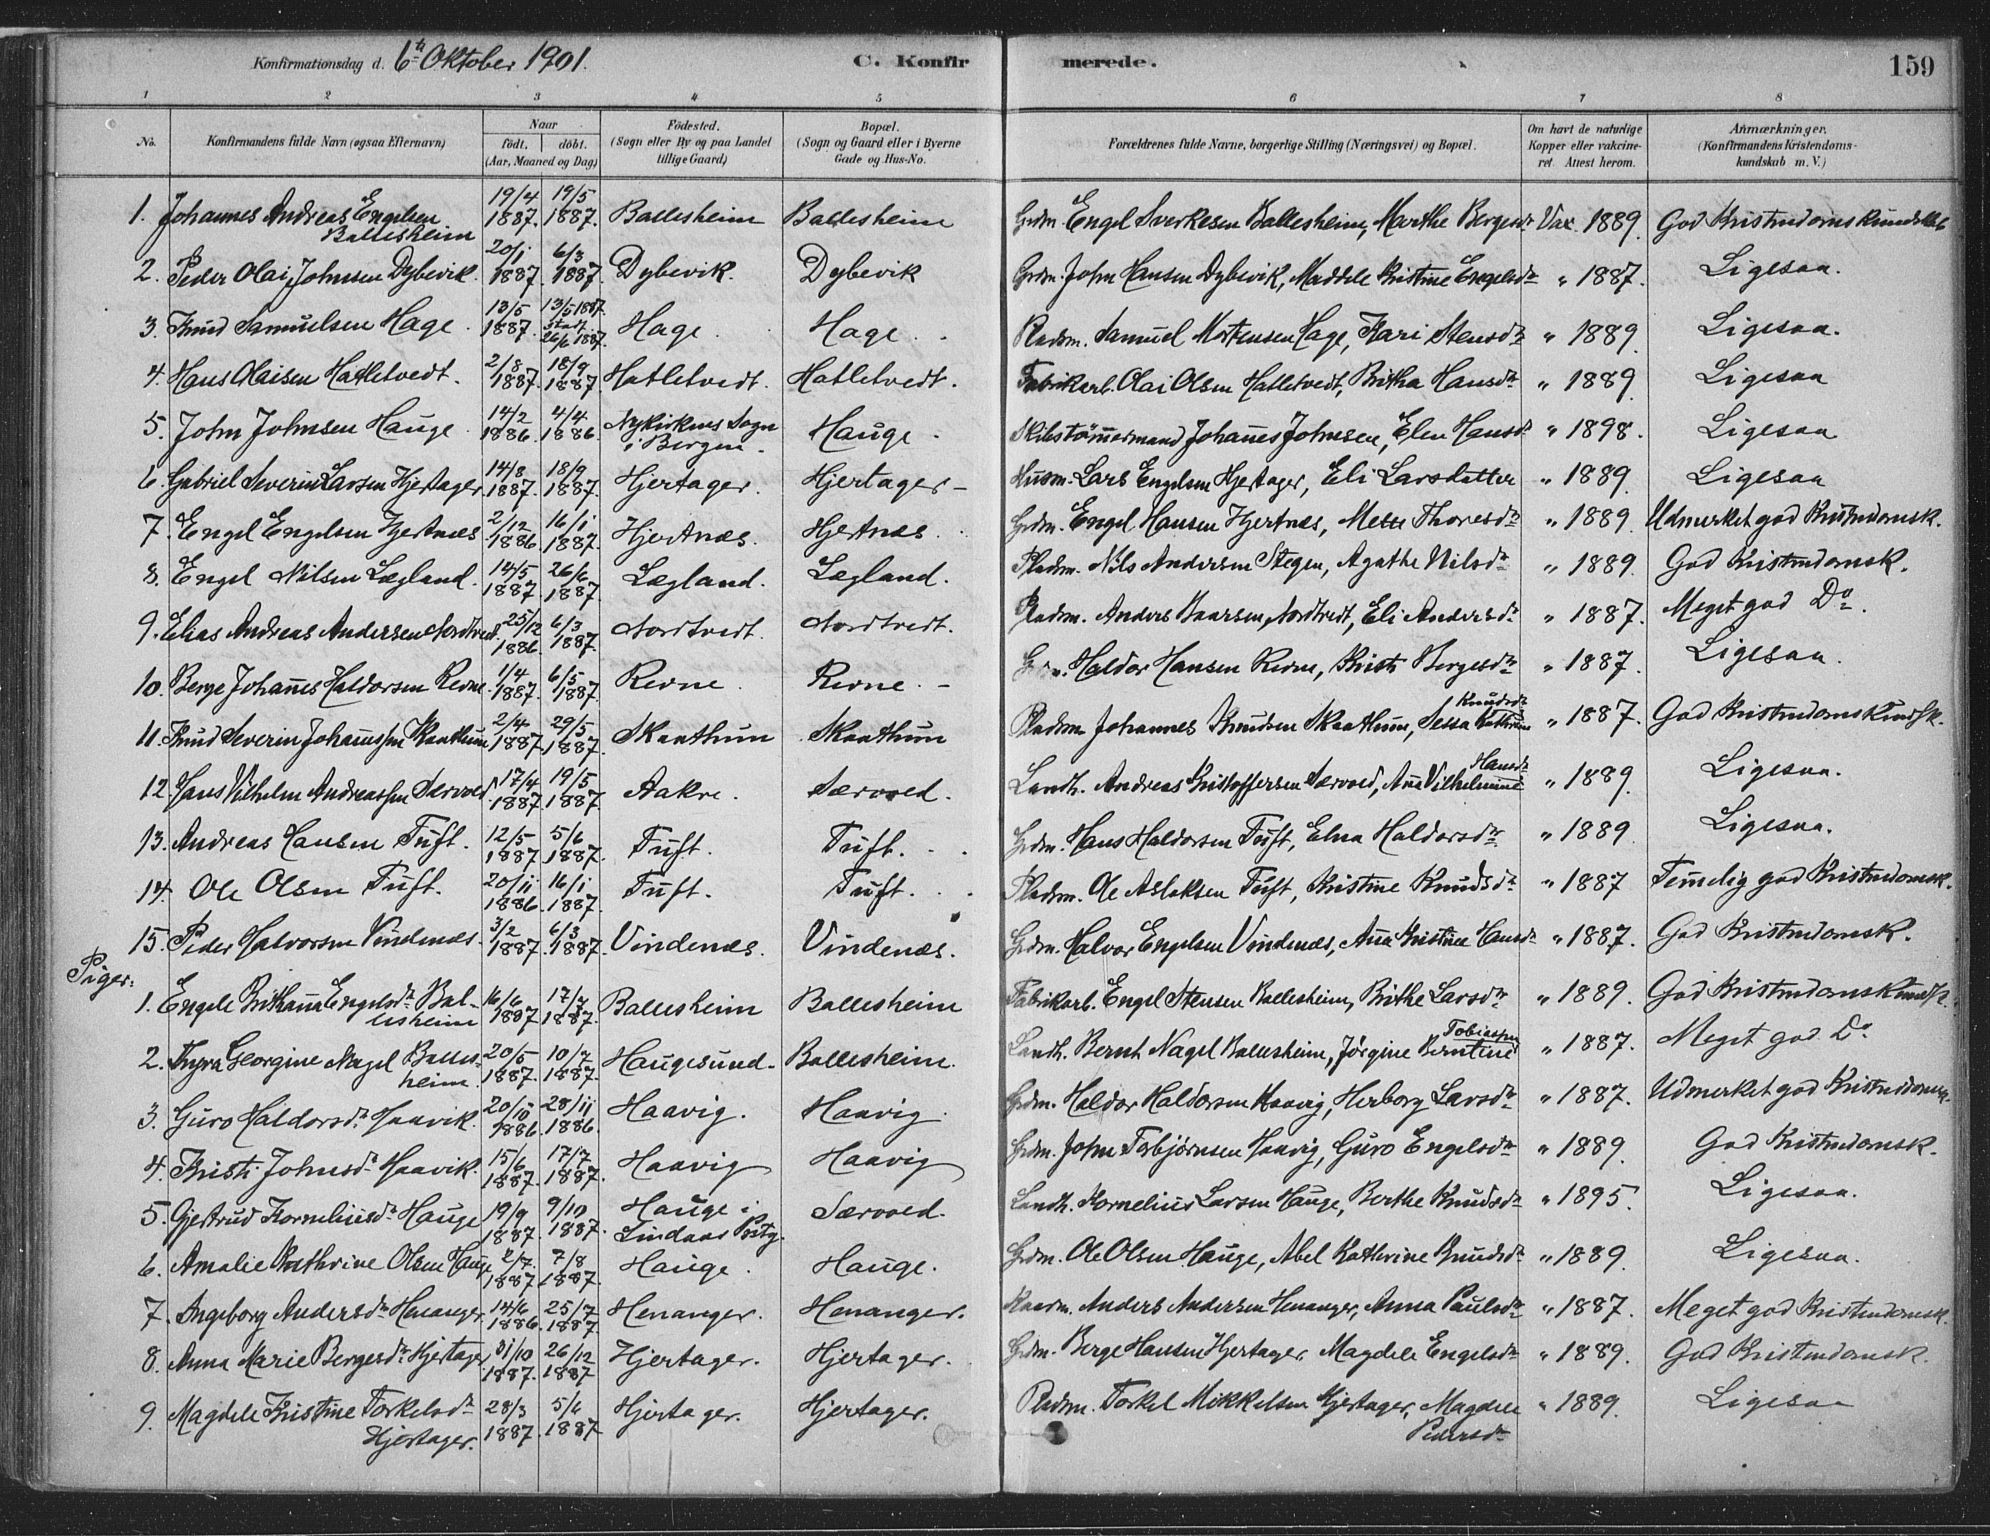 Konfirmationsdag d. 6te Oktober 1901. C. Konfirmerede. 159
1 2 3 4 5 6 7 8
No. Konfirmandens fulde Navn (ogsaa Efternavn) Naar født. døbt. (Aar, Maaned og Dag) Fødested. (Sogn eller By og paa Landet tillige Gaard) Bopæl. (Sogn og Gaard eller i Byerne Gade og Hus-No. Forældrenes fulde Navne, borgerlige Stilling (Næringsvei) og Bopæl. Om havt de naturlige Kopper eller vakcineret. Attest herom. Anmærkninger. (Konfirmandens Kristendomskundskab m. V.)
1. Johannes Andreas Engelsen Ballesheim 19/4 1887. 19/5 1887. Ballesheim Ballesheim Grdm. Engel Sverkesen Ballesheim, Marthe Bergesdr Vax. 1889. God Kristendomskundskab
2. Peder Olai Johnsen Dybevik. 20/1 1887. 6/3 1887. Dybevik. Dybevik Grdm. John Hansen Dybevik, Maddele Kristine Engelsdr " 1887. Ligesaa.
3. Knud Samuelsen Hage. 13/5 1887. 13/5 1887. stadf. 26/6 1887. Hage. Hage. Pladsm. Samuel Mortensen Hage, Kari Stensdr " 1889. Ligesaa.
4. Hans Olaisen Hatletvedt. 2/8 1887. 18/9 1887. Hatletvedt. Hatletvedt. Fabrikarb. Olai Olsen Hatletvedt, Britha Hansdr " 1889. Ligesaa
5. John Johnsen Hauge. 14/2 1886. 4/4 1886. Nykirkens Sogn i Bergen. Hauge. Skibstømmermand Johannes Johnsen, Elen Hansdr " 1898. Ligesaa
6. Gabriel Severin Larsen Hjertager 14/8 1887. 18/9 1887. Hjertager. Hjertager Husm. Lars Engelsen Hjertager, Eli Larsdatter " 1889. Ligesaa
7. Engel Engelsen Hjertnæs 2/12 1886. 16/1 1887. Hjertnæs. Hjertnæs. Grdm. Engel Hansen Hjertnæs, Mette Thoresdr " 1889. Udmerket god Kristendomsk.
8. Engel Nilsen Lægland. 14/5 1887. 26/6 1887. Lægland. Lægland. Pladsm. Nils Andersen Stegen, Agathe Nilsdr " 1889. God Kristendomsk.
9. Elias Andreas Andersen Nordtvedt 25/12 1886. 6/3 1887. Nordtvedt. Nordtvedt. Pladsm. Anders Baarsen Nordtvedt, Eli Andersdr " 1887. Meget god Do
10. Berge Johannes Haldorsen Revne 1/4 1887. 6/5 1887. Revne. Revne. Grdm. Haldor Hansen Revne, Kristi Bergesdr " 1887. Ligesaa.
11. Knud Severin Johannessen Skaathun 2/4 1887. 29/5 1887. Skaathun Skaathun Pladsm. Johannes Knudsen Skaathun, Sessa Kathrine Knudsdr " 1887. God Kristendomskundsk.
12. Hans Vilhelm Andreassen Særvold 17/4 1887. 19/5 1887. Aakre. Særvold. Landh. Andreas Kristoffersen Særvold, Ana Vilhelmine Hansdr " 1889. Ligesaa.
13. Andreas Hansen Tuft. 12/5 1887. 5/6 1887. Tuft. Tuft. Grdm. Hans Haldorsen Tuft, Elna Haldorsdr " 1889. Ligesaa.
14. Ole Olsen Tuft. 20/11 1886. 16/1 1887. Tuft. Tuft. Pladsm. Ole Aslaksen Tuft, Kristine Knudsdr " 1887 Temelig god Kristendomsk.
15. Peder Halvorsen Vindenæs. 3/2 1887. 6/3 1887. Vindenæs. Vindenæs. Grdm. Halvor Engelsen Vindenæs, Ana Kristine Hansdr " 1887. God Kristendomsk.
Piger:
1. Engele Brithana Engelsdr Ballesheim 16/6 1887 17/7 1887. Ballesheim Ballesheim Fabrikarb. Engel Stensen Ballesheim, Brithe Larsdr " 1889. God Kristendomskundsk.
2. Thyra Georgine Nagel Ballesheim. 20/5 1887. 10/7 1887. Haugesund. Ballesheim. Landh. Bernt Nagel Ballesheim, Jørgine Berntine Tobiassen " 1887. Meget god Do
3. Guro Haldorsdr Haavik. 20/10 1886. 28/11 1886. Haavig. Haavig. Grdm. Haldor Haldorsen Haavig, Herborg Larsdr " 1887. Udmerket god Kristendomsk.
4. Kristi Johnsdr Haavik. 15/6 1887. 17/7 1887. Haavig Haavig Grdm. John Torbjørnsen Haavig, Guro Engelsdr " 1889. God Kristendomsk.
5. Gjertrud Korneliusdr Hauge 19/9 1887. 9/10 1887. Hauge i Lindaas Prstg. Særvold. Landh. Kornelius Larsen Hauge, Berthe Knudsdr " 1895. Ligesaa.
6. Amalie Kathrine Olsen Hauge 2/7 1887. 7/8 1887. Hauge. Hauge. Grdm. Ole Olsen Hauge, Abel Kathrine Knudsdr " 1889. Ligesaa.
7. Ingeborg Andersdr Henanger 14/6 1886. 25/7 1887. Henanger. Henanger. Anders Andersen Henanger, Anna Paulsdr " 1887. Meget god Kristendomsk.
8. Anna Marie Bergesdr Hjertager 31/10 1887. 26/12 1887. Hjertager. Hjertager. Grdm. Berge Hansen Hjertager, Magdele Engelsdr " 1889. God Kristendomsk.
9. Magdele Kristine Torkelsdr Hjertager. 28/3 1887. 5/6 1887. Hjertager. Hjertager. Pladsm. Torkel Mikkelsen Hjertager, Magdele Pedersdr " 1889. Ligesaa